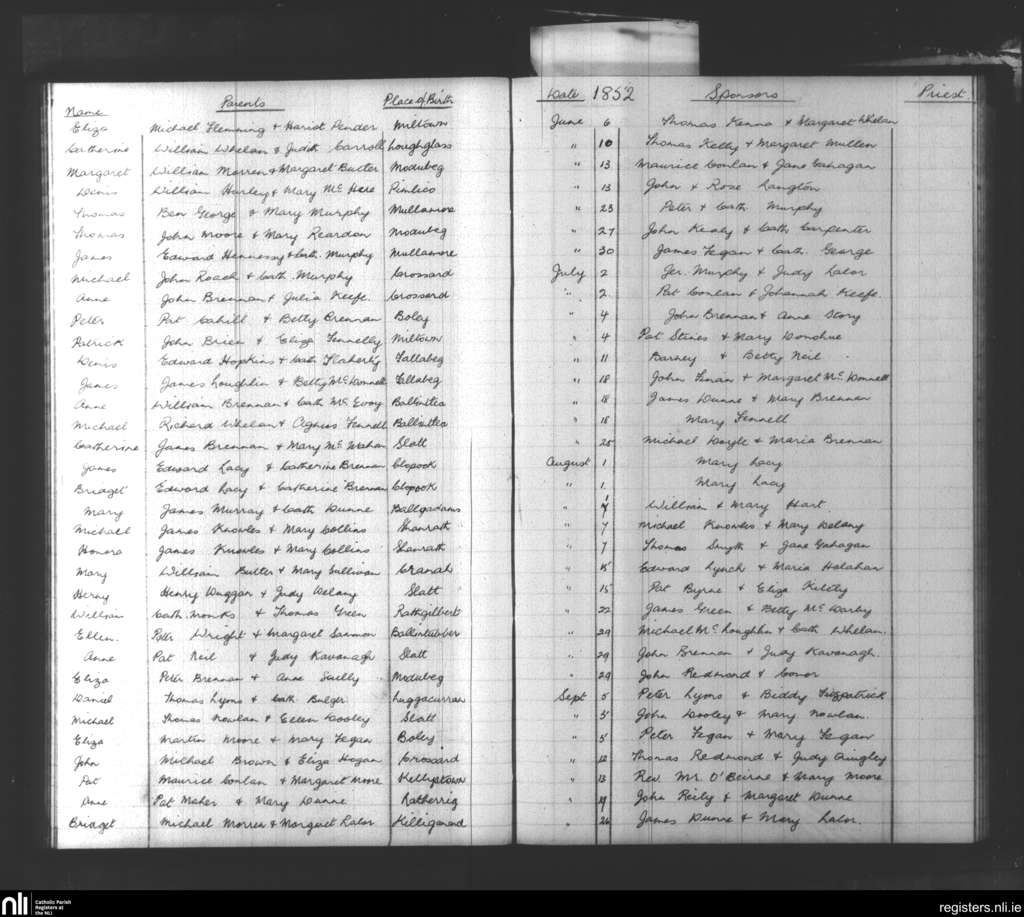 Name Parents Place of Birth Date 1852 Sponsors Priest
Eliza Michael Flemming & Hariot Pender Miltown June 6 Thomas Kenna & Margaret Whelan
Catherine William Whelan & Judith Carroll Loughglass " 10 Thomas Kelly & Margaret Mullen
Margaret William Morren & Margaret Butler Modubeg " 13 Maurice Conlan & Jane Gahagan
Denis William Hurley & Mary Mc Here Pimlico " 13 John & Rose Langton
Thomas Ben George & Mary Murphy Mullamore " 23 Peter & Cath. Murphy
Thomas John Moore & Mary Reardon Modubeg " 27 John Kealy & Cath Carpenter
James Edward Hennessy & Cath. Murphy Mullamore " 30 James Fegan & Cath. George
Michael John Roach & Cath. Murphy Crossard July 2 Jer. Murphy & Judy Lalor
Anne John Brennan & Julia Keefe Crossard " 2 Pat Conlan & Johannah Keefe.
Peter Pat Cahill & Betty Brennan Boley " 4 John Brennan & Anne Story
Patrick John Brien & Eliza Fennelly Miltown " 4 Pat Stines & Mary Donohue
Denis Edward Hopkins & Cath Flaherty Tallabeg " 11 Barney & Betty Neil
James James Loughlin & Betty Mc Donnell Tallabeg " 18 John Finan & Margaret Mc Donnell
Anne William Brennan & Cath Mc Evoy Ballintlea " 18 James Dunne & Mary Brennan
Michael Richard Whelan & Agness Fennell Ballintlea " 18 Mary Fennell
Catherine James Brennan & Mary Mc Mahan Slatt " 25 Michael Doyle & Maria Brennan
James Edward Lacy & Catherine Brennan Clopook August 1 Mary Lacy
Bridget Edward Lacy & Catherine Brennan Clopook " 1 Mary Lacy
Mary James Murray & Cath Dunne Ballgadams " 1 William & Mary Hart
Michael James Knowles & Mary Collins Shanrath " 7 Michael Knowles & Mary Delany
Honora James Knowles & Mary Collins Shanrath " 7 Thomas Smyth & Jane Gahagan
Mary William Butler & Mary Sullivan Cranah " 15 Edward Lynch & Maria Holahan
Henry Henry Duggan & Judy Delany Slatt " 15 Pat Byrne & Eliza Kiltty
William Cath. Monks & Thomas Green Rathgilbert " 22 James Green & Betty Mc Darby
Ellen. Peter Wright & Margaret Sammon Ballintubber " 29 Michael Mc Loughlin & Cath Whelan.
Anne Pat Neil & Judy Kavanagh Slatt " 29 John Brennan & Judy Kavanagh.
Eliza Peter Brennan & Anne Scully Modubeg " 29 John Redmond & Conor
Daniel Thomas Lyons & Cath Bulger Luggacurran Sept 5 Peter Lyons & Biddy Fitzpatrick
Michael Thomas Nowlan & Ellen Dooley Slatt " 5 John Dooley & Mary Nowlan.
Eliza Martin Moore & Mary Fegan Boley " 5 Peter Fegan & Mary Fegan
John Michael Brown & Eliza Hogan Crossard " 12 Thomas Redmond & Judy Quigley
Pat Maurice Conlan & Margaret Moore Kellystown " 13 Rev. Mr. O'Beirne & Mary Moore
Anne Pat Maher & Mary Dunne Ratherrig " John Reily & Margaret Dunne
Bridget Michael Morren & Margaret Lalor " 26 James Dunne & Mary Lalor.
nli Catholic Parish
Registers at
the NLI
registers.nli.ie